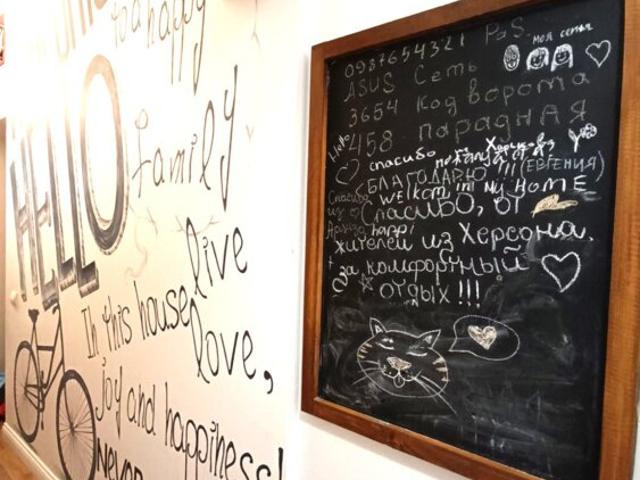 to a happy
HELLO
family
In this house
live
love,
joy and happiness!
never
0987654321 PaS.
моя семья
ASUS Сеть
3654 код ворота
458 парадная
Hello
спасибо пожалуйста
БЛАГОДАРЮ!!! (ЕВГЕНИЯ)
Welkom in My Home
Спасибо, от
жителей из Херсона,
за комфортный
отдых!!!